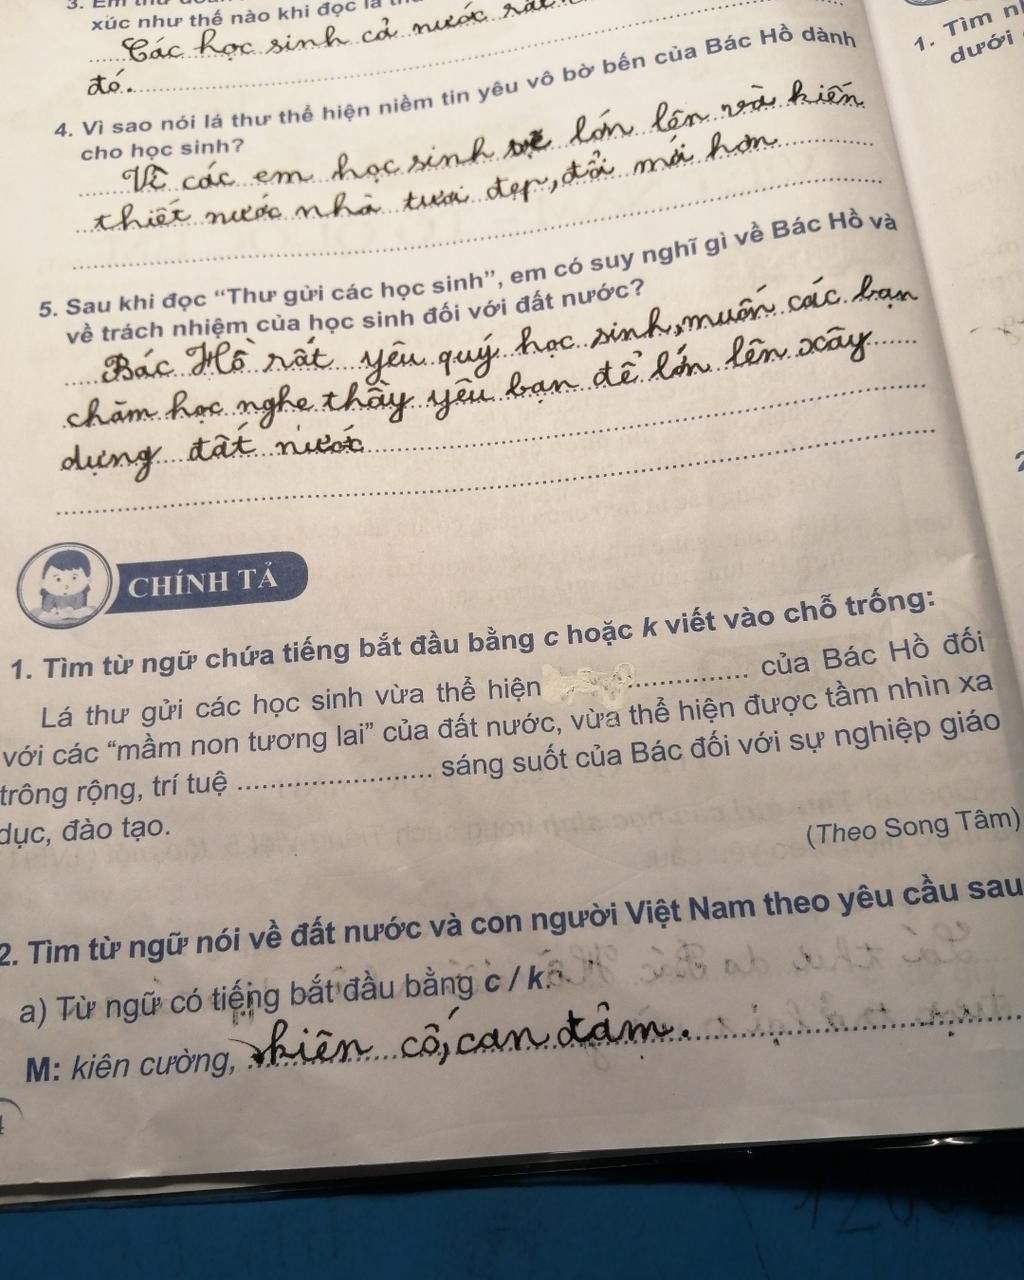 3. Em
xúc như thế nào khi đọc lá
Các học sinh cả nước rất
đó.
4. Vì sao nói lá thư thể hiện niềm tin yêu vô bờ bến của Bác Hồ dành
cho học sinh?
Vì các em học sinh sẽ lớn lên và kiến
thiết nước nhà tươi đẹp, đổi mới hơn
5. Sau khi đọc “Thư gửi các học sinh”, em có suy nghĩ gì về Bác Hồ và
về trách nhiệm của học sinh đối với đất nước?
Bác Hồ rất yêu quý học sinh, muốn các bạn
chăm học nghe thầy yêu bạn để lớn lên xây
dựng đất nước
CHÍNH TẢ
1. Tìm từ ngữ chứa tiếng bắt đầu bằng c hoặc k viết vào chỗ trống:
Lá thư gửi các học sinh vừa thể hiện ............... của Bác Hồ đối
với các “mầm non tương lai” của đất nước, vừa thể hiện được tầm nhìn xa
trông rộng, trí tuệ ........................ sáng suốt của Bác đối với sự nghiệp giáo
dục, đào tạo.
(Theo Song Tâm)
2. Tìm từ ngữ nói về đất nước và con người Việt Nam theo yêu cầu sau
a) Từ ngữ có tiếng bắt đầu bằng c / k.
M: kiên cường, kiên cố, can đảm.
1. Tìm
dưới
2